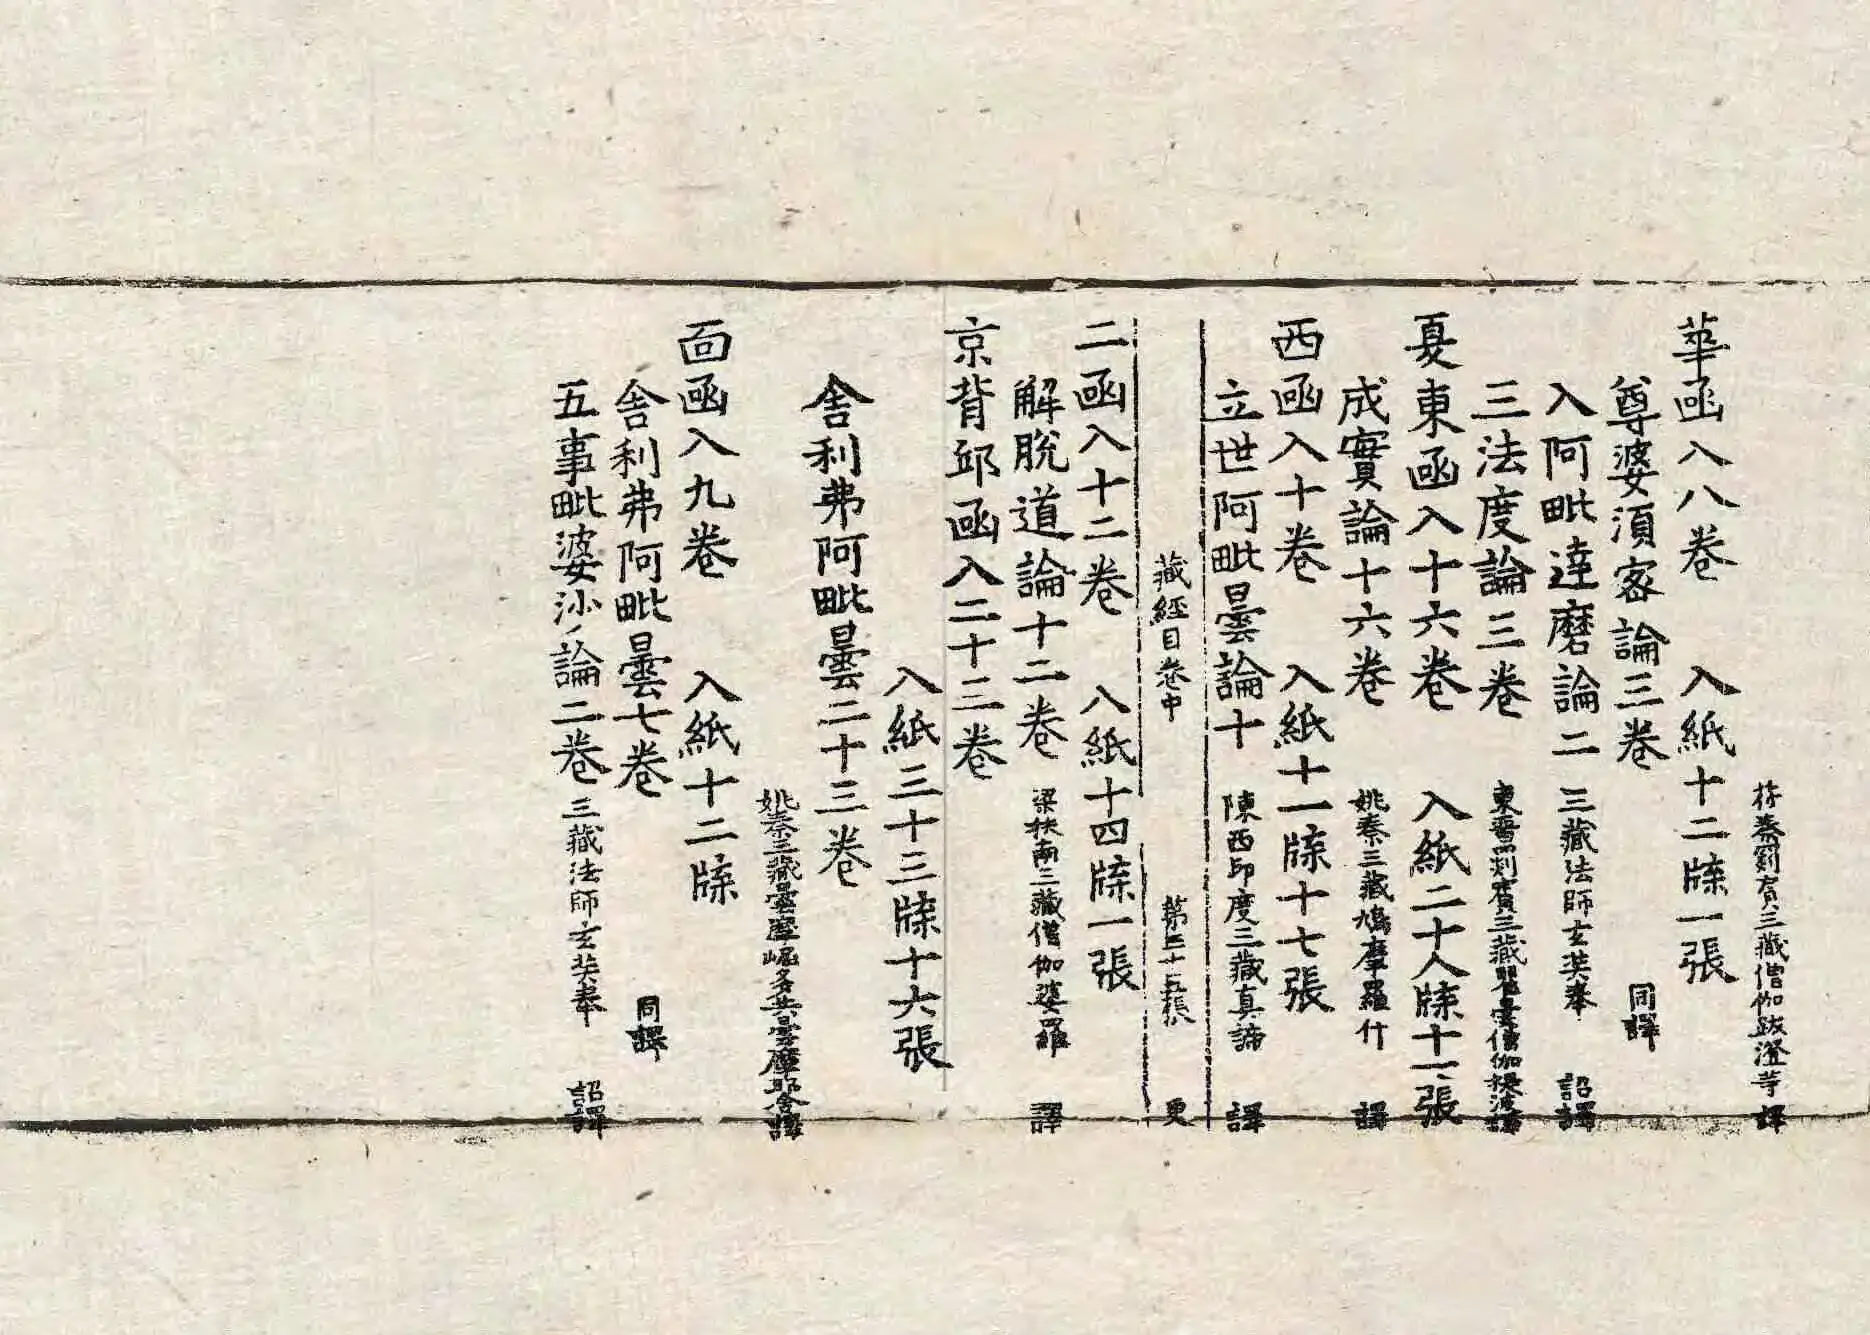 苻秦罽賓三藏僧伽跋澄等 譯
華函入八卷 入紙十二牒一張
尊婆須蜜論三卷 同譯
入阿毗達磨論二 三藏法師玄奘奉 詔譯
三法度論三卷 東晉罽賓三藏瞿曇僧伽提婆譯
夏東函入十六卷 入紙二十八牒十一張
成實論十六卷 姚秦三藏鳩摩羅什 譯
西函入十卷 入紙十一牒十七張
立世阿毗曇論十 陳西印度三藏真諦 譯
藏經目卷中 第三十五張 更
二函入十二卷 入紙十四牒一張
解脫道論十二卷 梁扶南三藏僧伽婆羅 譯
京背邱函入二十三卷
入紙三十三牒十六張
舍利弗阿毗曇二十三卷
姚秦三藏曇摩崛多共曇摩耶舍譯
面函入九卷 入紙十二牒
舍利弗阿毗曇七卷 同譯
五事毗婆沙論二卷 三藏法師玄奘奉 詔譯